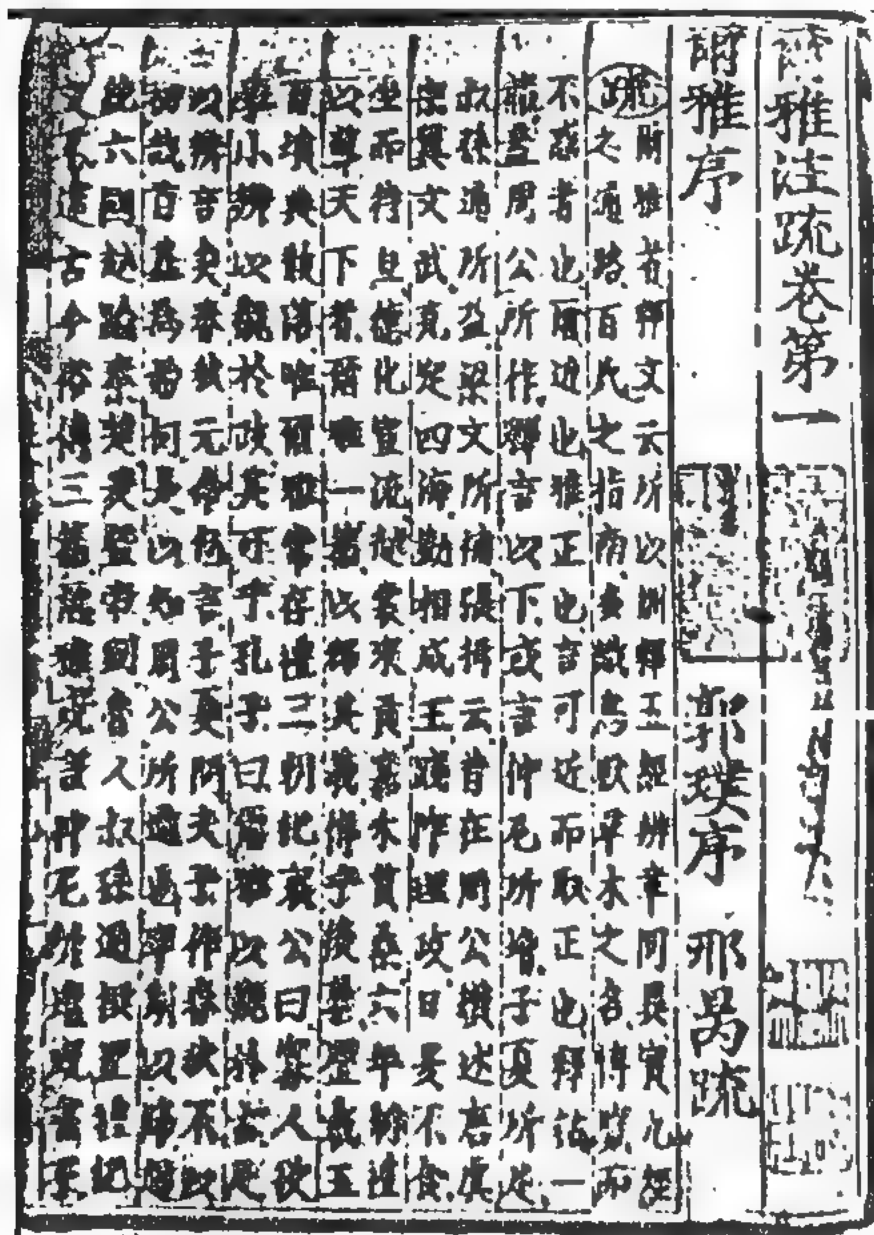 爾雅注疏卷第一
爾雅序 郭璞序 邢昺疏
疏 爾雅者釋文云所以訓釋五經辨章同異實九經
之通路百氏之指南多識鳥獸草木之名博覽而
不惑者也爾近也雅正也言可近而取正也釋詁一
篇蓋周公所作釋言以下或言仲尼所增子夏所足
叔孫通所益梁文所補張揖云昔在周公纘述唐虞
宗翼文武克定四海勤相成王踐阼理政日昃不食
坐而待旦德化宣流越裳來貢嘉禾貫桑六年制禮
以導天下著爾雅一篇以釋其義傳乎後 歷載五
百墳典散落唯爾雅常存禮三朝記哀公曰寡人欲
學小辨以觀於政其可乎孔子曰爾雅以觀於古足
以辨言矣春秋元命包言子夏問夫子作春秋不以
初哉首基為始何是以知周公所造也率斯以降
此六國越踰秦楚爰暨帝劉魯人叔孫通撰置禮記
文不違古今俗傳三篇 雅或言仲尼所增或言子